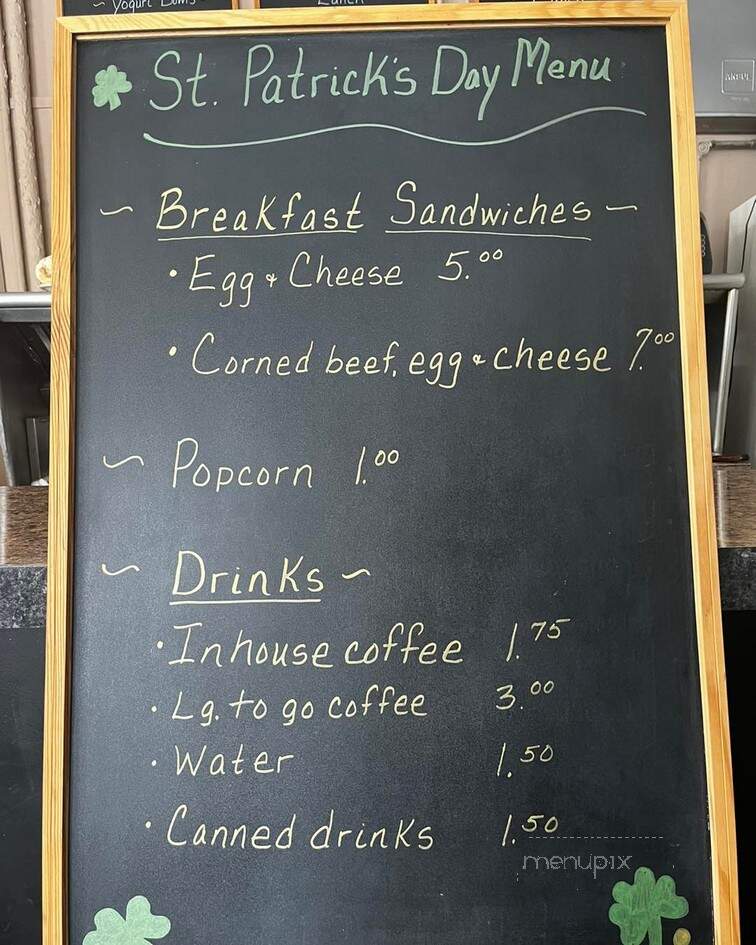 ~ Yogurt Bowls
Lunch
St. Patrick's Day Menu
~ Breakfast Sandwiches ~
• Egg & Cheese 5.00
• Corned beef, egg & cheese 7.00
~ Popcorn 1.00
~ Drinks ~
• Inhouse coffee 1.75
• Lg. to go coffee 3.00
• Water 1.50
• Canned drinks 1.50
menupix